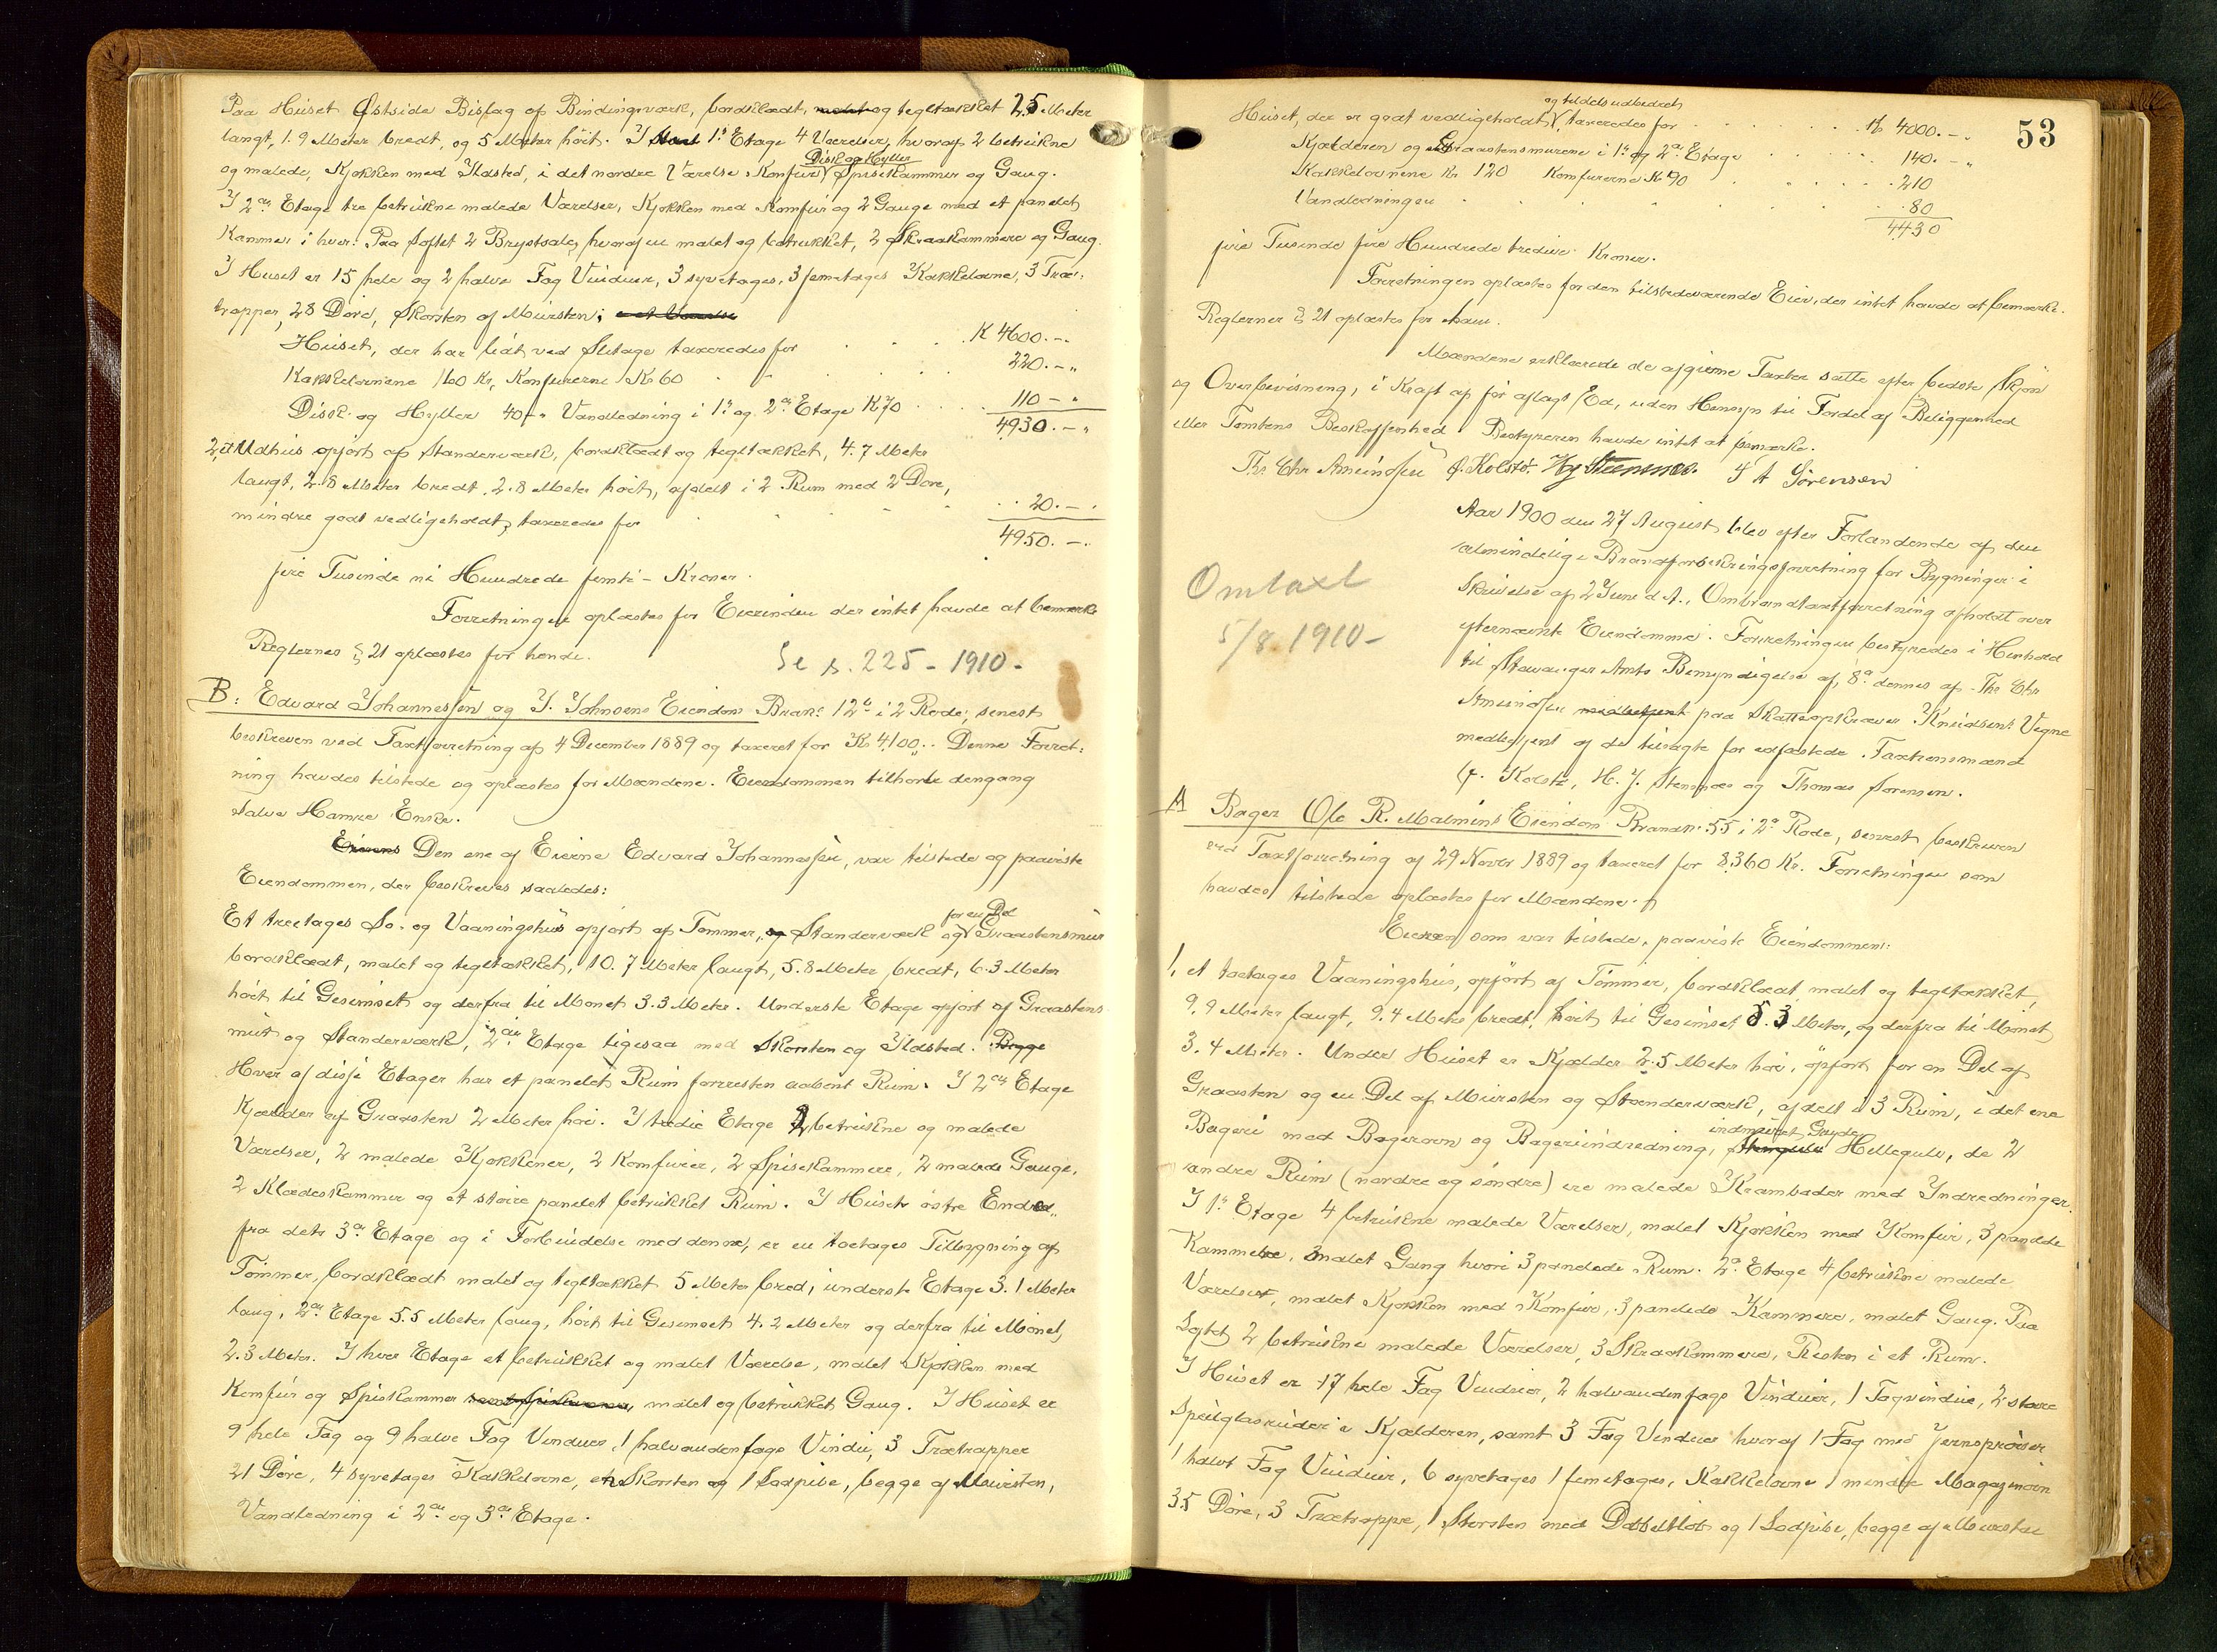 Paa Huset Østside Bislag af Bindingsværk, bordklædt, malet og tegltækket 25 Meter
langt, 1.9 Meter bredt, og 5 Meter høit. I 1ste Etage 4 Værelser, hvoraf 2 betrukne
Disk og Hylder
og malede, Kjøkken med Ildsted, i det nordre Værelse Komfur Spisekammer og Gang.
I 2den Etage tre betrukne malede Værelser, Kjøkken med Komfur og 2 Gange med et panelet
Kammer i hver. Paa Loftet 2 Brystsale, hvoraf en malet og betrukket, 2 Skraakammere og Gang.
I Huset er 15 hele og 2 halve Fag Vinduer, 3 syvetages, 3 femetages Kakkelovne, 3 Træ-
trapper, 28 Døre, Skorsten af Mursten;
Huset, der har lidt ved Slitage taxeredes for K 4600.-
Kakkelovnene 160 Kr, Komfurerne Kr 60 220.-"
Disk og Hylder 40-" Vandledning i 1ste og 2den Etage K 70 110-"
4930.-"
2, et Udhus opført af Standerværk, bordklædt og tegltækket, 4.7 Meter
langt, 2.8 Meter bredt, 2.8 Meter høit, afdelt i 2 Rum med 2 Døre,
mindre godt vedligeholdt, taxeredes for 20.-
4950.-
fire Tusinde ni Hundrede femti - Kroner.
Forretningen oplæstes for Eierinden der intet havde at bemærke
Reglernes § 21 oplæstes for hende.
Se s. 225 - 1910.
B: Edvard Johannessen og J. Johnsens Eiendom Brandn: 12a i 2 Rode, senest
beskreven ved Taxtforretning af 4 December 1889 og taxeret for Kr 4100.. Denne Forret-
ning havdes tilstede og oplæstes for Mændene. Eiendommen tilhørte dengang
Salve Hamre Enke.
Eierens Den ene af Eierne Edvard Johannessen, var tilstede og paaviste
Eiendommen, der beskreves saaledes:
for en Del
Et treetages Sø- og Vaaningshus opført af Tømmer, og Standerværk og Graastensmur
bordklædt, malet og tegltækket, 10.7 Meter langt, 5.8 Meter bredt, 6.3 Meter
høit til Gesimset og derfra til Mønet 3.3 Meter. Underste Etage opført af Graastens-
mur og Standerværk, 2den Etage ligesaa med Skorsten og Ildsted. Begge
Hver af disse Etager har et panelet Rum forresten aabent Rum. I 2den Etage
Kjælder af Graasten 2 Meter høi. I tredie Etage 2 betrukne og malede
Værelser, 2 malede Kjøkkener, 2 Komfurer, 2 Spisekammere, 2 malede Gange,
2 Klædeskammer og et større panelet betrukket Rum. I Husets østre Ende
fra dets 3die Etage og i Forbindelse med denne, er en toetages Tilbygning af
Tømmer, bordklædt malet og tegltækket 5 Meter bred, underste Etage 3.1 Meter
lang, 2den Etage 5.5 Meter lang, høit til Gesimset 4.2 Meter og derfra til Mønet,
2.3 Meter. I hver Etage et betrukket og malet Værelse, malet Kjøkken med
Komfur og Spiskammer malet og betrukket Gang. I Huset er
9 hele Fag og 9 halve Fag Vinduer, 1 halvanden fags Vindu, 3 Trætrapper
21 Døre, 4 syvetages Kakkelovne, en Skorsten og 1 Lodpibe, begge af Mursten,
Vandledning i 2den og 3die Etage.
53
og tildels udbedret
Huset, der er godt vedligeholdt, taxeredes for Kr 4000.-
Kjælderen og Graastensmurene i 1ste og 2den Etage 140.-"
Kakkelovnene Kr 120 Komfurerne Kr 90 210
Vandledningen 80
4430
fire Tusinde fire Hundrede tredive Kroner.
Forretningen oplæstes for den tilstedeværende Eier, der intet havde at bemærke.
Reglernes § 21 oplæstes for ham.
Mændene erklærede de afgivne Taxter satte efter bedste Skjøn
og Overbevisning, i Kraft af før aflagt Ed, uden Hensyn til Fordel af Beliggenhed
eller Tomtens Beskaffenhed. Bestyreren havde intet at bemærke.
Ths Chr Amundsen G. Kolstø. Hj Stensnes. T A Sørensen
Aar 1900 den 27 August blev efter Forlangende af den
almindelige Brandforsikringsforretning for Bygninger i
Skrivelse af 2 Juni d. A., Ombrandtaxtforretning afholdt over
efternævnte Eiendomme. Forretningen bestyredes i Henhold
til Stavanger Amts Bemyndigelse af 8de dennes af Ths Chr
Amundsen paa Skatteopkræver Knudsens Vegne
medbetjent af de tilsagte før edfæstede Taxtionsmænd
G. Kolstø, H. J. Stensnæs og Thomas Sørensen.
Omtaxt
5/8 1910-
A Bager Ole R. Malmins Eiendom Brandn: 55 i 2den Rode, senest beskreven
ved Taxtforretning af 29 Novbr 1889 og taxeret for 8360 Kr. Forretningen som
havdes tilstede oplæstes for Mændene.
Eieren som var tilstede, paaviste Eiendommen:
1, et toetages Vaaningshus, opført af Tømmer, bordklædt malet og tegltækket,
9.9 Meter langt, 9.4 Meter bredt, høit til Gesimset 5.3 Meter, og derfra til Mønet
3.4 Meter. Under Huset er Kjælder 2.5 Meter høi, opført for en Del af
Graasten og en Del af Mursten og Standerværk, afdelt i 3 Rum, i det ene
indmuret Gryde
Bageri med Bagerovn og Bageriindredning, Hellegulv, de 2
andre Rum (nordre og søndre) ere malede Kramboder med Indredninger.
I 1ste Etage 4 betrukne malede Værelser, malet Kjøkken med Komfur, 3 panelede
Kammere, malet Gang hvori 3 panelede Rum. 2den Etage 4 betrukne malede
Værelser, malet Kjøkken med Komfur, 3 panelede Kammere, malet Gang. Paa
Loftet 2 betrukne malede Værelser, 3 Skraakammere, Resten i et Rum.
I Huset er 17 hele Fag Vinduer, 2 halvanden fags Vinduer, 1 Tagvindue, 2 store
Speilglasruder i Kjælderen, samt 3 Fag Vinduer hvoraf 1 Fag med Jernsprosser
1 halvt Fag Vinduer, 6 syvetages 1 femetages, Kakkelovne 1 mindre Magazinovn
35 Døre, 3 Trætrappe, 1 Skorsten med Dobbeltløb og 1 Lodpibe, begge af Mursten